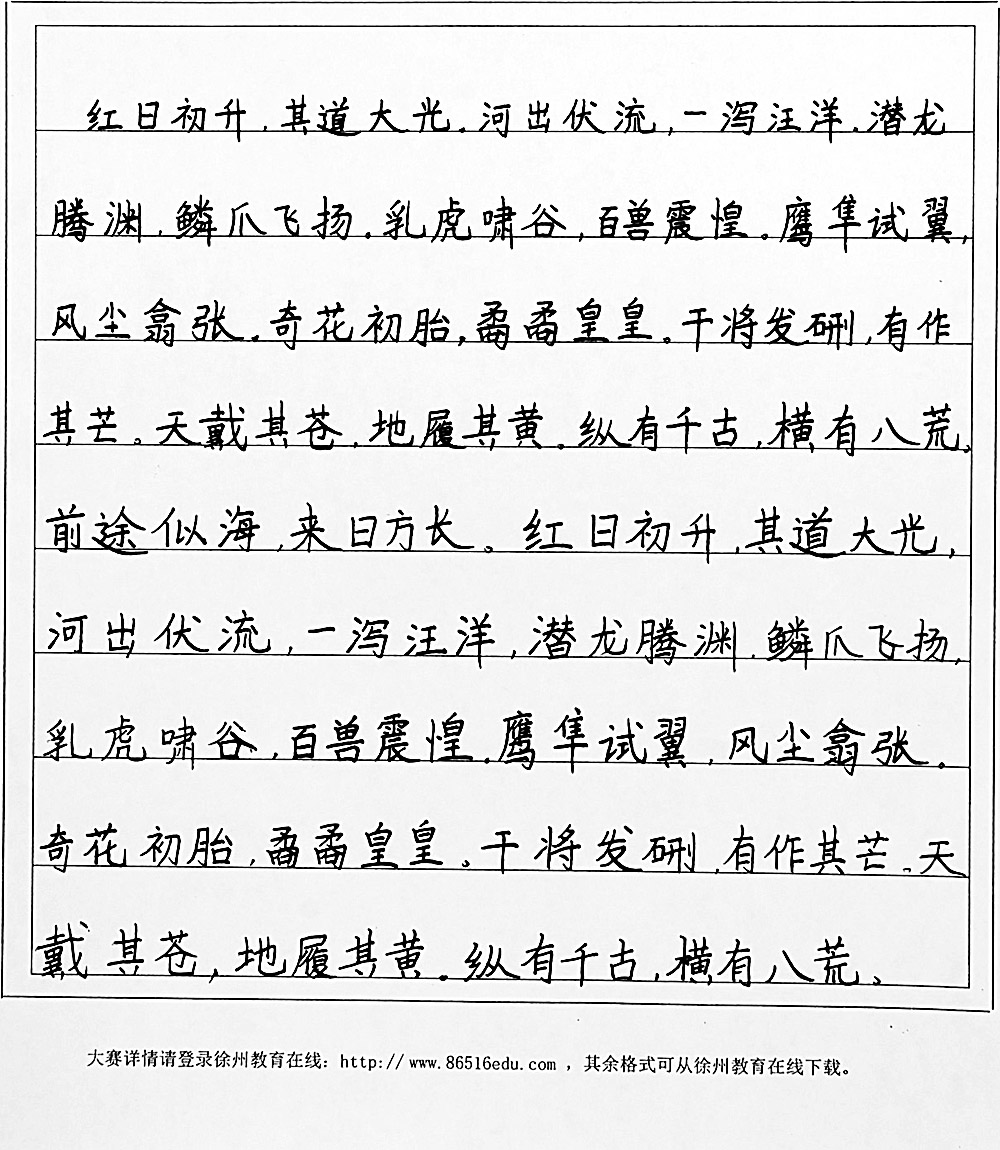 红日初升，其道大光。河出伏流，一泻汪洋。潜龙
腾渊，鳞爪飞扬。乳虎啸谷，百兽震惶。鹰隼试翼，
风尘翕张。奇花初胎，矞矞皇皇。干将发硎，有作
其芒。天戴其苍，地履其黄。纵有千古，横有八荒。
前途似海，来日方长。红日初升，其道大光，
河出伏流，一泻汪洋，潜龙腾渊，鳞爪飞扬，
乳虎啸谷，百兽震惶。鹰隼试翼，风尘翕张。
奇花初胎，矞矞皇皇。干将发硎，有作其芒。天
戴其苍，地履其黄。纵有千古，横有八荒。
大赛详情请登录徐州教育在线：http://www.86516edu.com ，其余格式可从徐州教育在线下载。